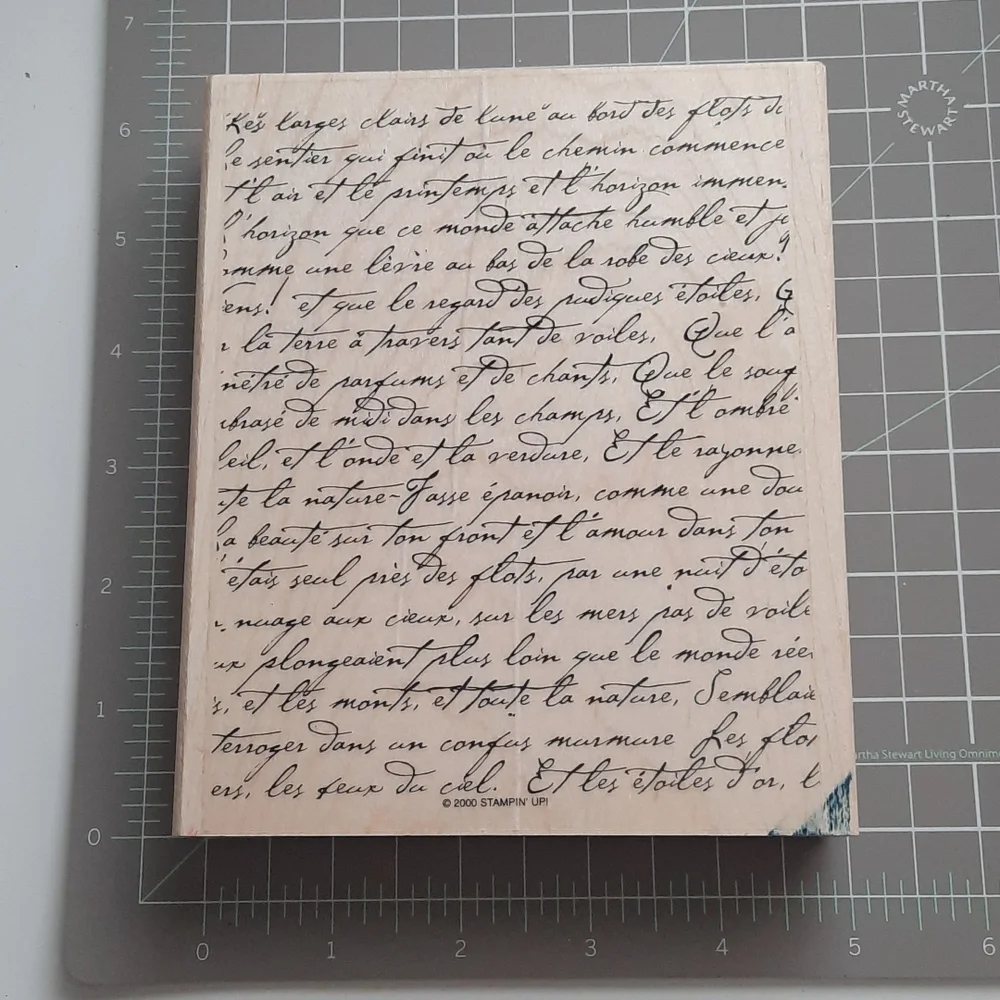 Les larges clairs de lune au bord des flots d
le sentier qui finit où le chemin commence
t l'air et le printemps et l'horizon immen
l'horizon que ce monde attache humble et j
omme une lèvre au bas de la robe des cieux!
iens! et que le regard des pudiques étoiles, Q
r la terre à travers tant de voiles, Que l'a
nétré de parfums et de chants, Que le souf
mbrasé de midi dans les champs, Et l'ombre
leil, et l'onde et la verdure, Et le rayonne
ute la nature-Fasse épanoir, comme une dou
la beauté sur ton front et l'amour dans ton
étais seul près des flots, par une nuit d'éto
nuage aux cieux, sur les mers pas de voile
ux plongeaient plus loin que le monde rée
s, et les monts, et toute la nature, Semblaie
terroger dans un confus murmure Les flo
ers, les feux du ciel. Et les étoiles d'or, l
© 2000 STAMPIN' UP!
MARTHA STEWART
artha Stewart Living Omnim
7
6
5
4
3
2
1
0
0 1 2 3 4 5 6